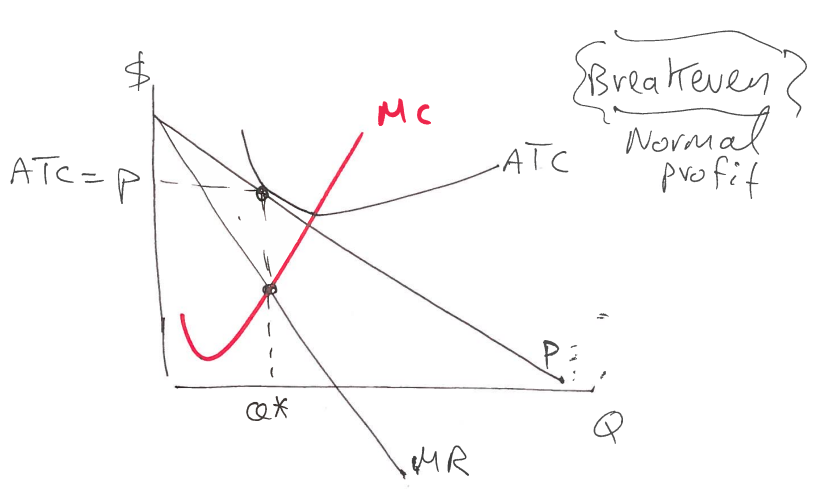 $
Breakeven
Normal
profit
MC
ATC
ATC = P
P
Q*
Q
MR